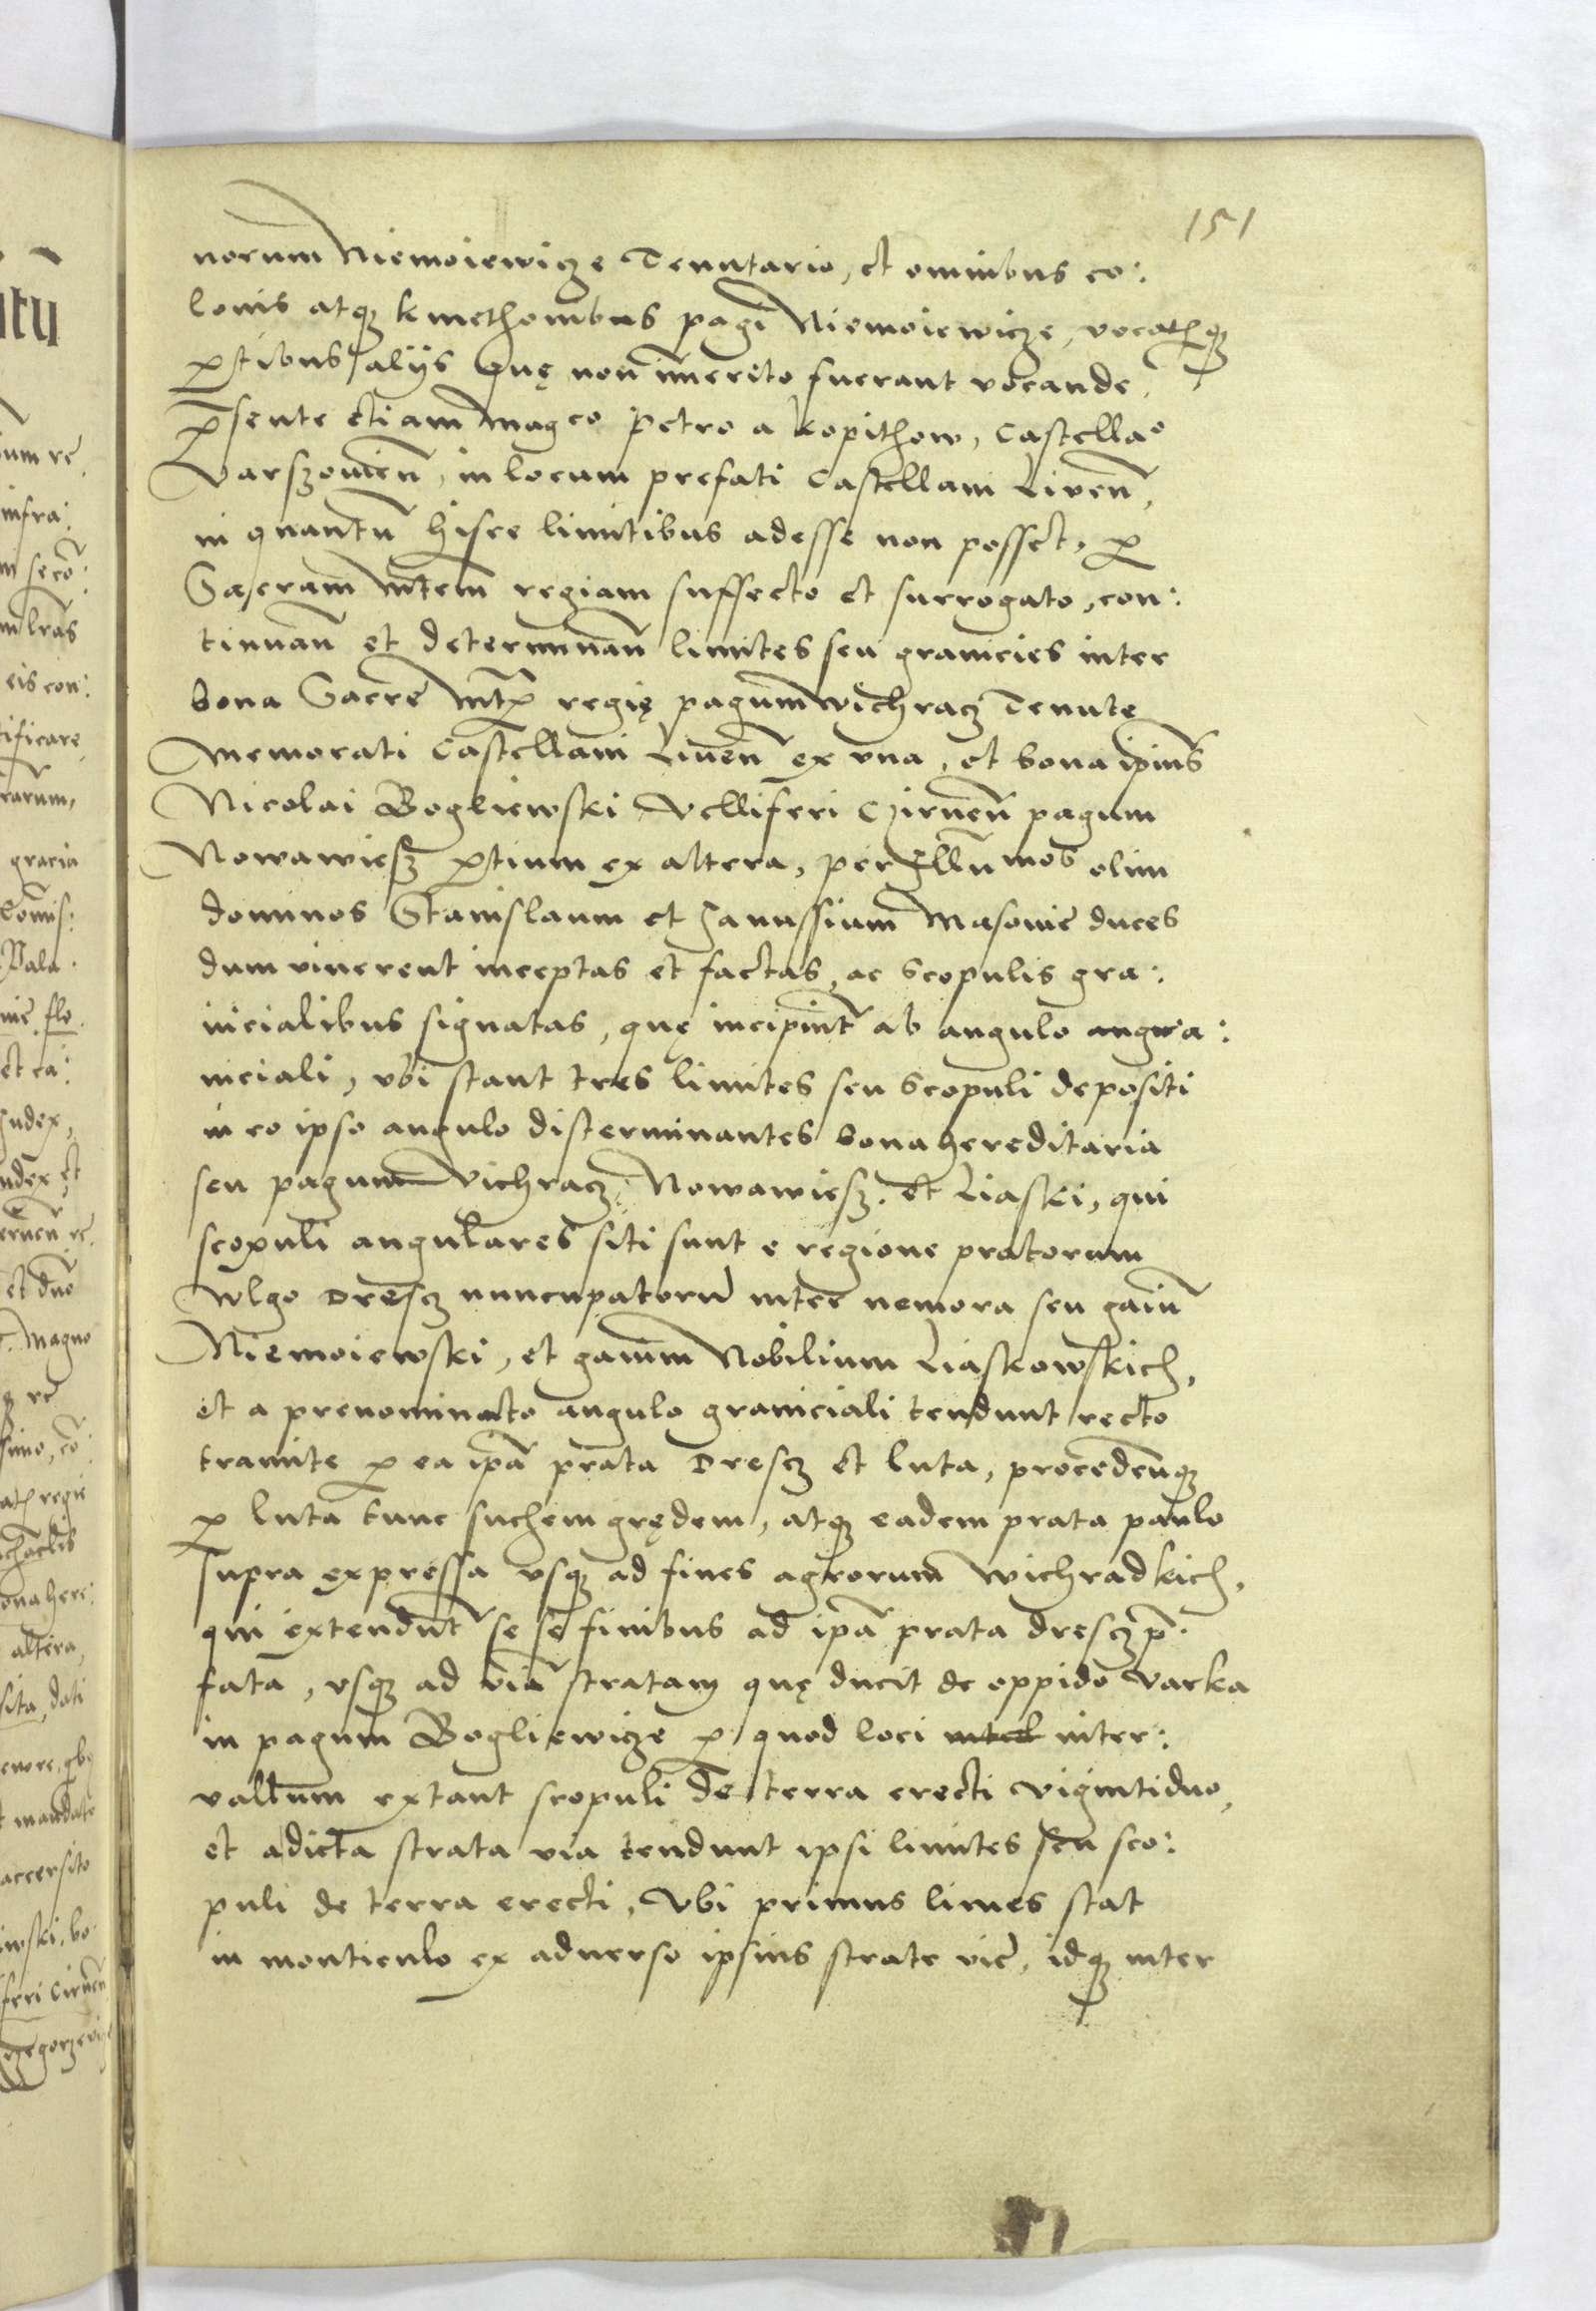 151
norum Niemoiewicze Tenutario, et omnibus co:
lonis atqꝫ kmethonibus pagi Niemoiewicze, vocatisqꝫ
ꝑtibus alijs quę non im̄erito fuerant vocande,
p̄sente etiam Magco Petro a Kopithow, Castellaº
Varszouien̄, in locum prefati Castellani Liuen̄,
in quantū hisce limitibus adesse non posset, ꝑ
Sacram Mtem̄ regiam suffecto et surrogato, con:
tinuan̄ et determinan̄ limites seu granicies inter
bona Sacre Mtꝭ regię pagum Wichracz Tenute
memorati Castellani Liuen̄ ex vna, et bona ipius̄
Nicolai Bogliewski Velliferi Czirnen̄ pagum
Nowawiesz ꝑtium ex altera, per Illūmos olim
dominos Stanislaum et Janussium Masouie duces
dum viuerent inceptas et factas, ac scopulis gra:
nicialibus signatas, quę incipiūt ab angulo angra:
niciali, vbi stant tres limites seu scopuli depositi
in eo ipso angulo disterminantes bona hereditaria
seu pagum Vichracz, Nowawiesz. et Liaski, qui
scopuli angulares siti sunt e regione pratorum
wlgo Drescz nuncupatorū inter nemora seu gaiū
Niemoiewski, et gaium Nobilium Liaskowskich,
et a prenominato angulo graniciali tendunt recto
tramite ꝑ ea ipā prata Drescz et luta, procedendūqꝫ
ꝑ luta tunc suchem grędem, atqꝫ eadem prata paulo
supra expressa vsqꝫ ad fines agrorum Wichradkich,
qui extendūt se se finibus ad ipā prata dresczp̄:
fata, vsqꝫ ad viā stratam quę ducit de oppido Varka
in pagum Bogliewicze ꝑ quod loci inter:
vallum extant scopuli de terra erecti vigintiduo,
et a dicta strata via tendunt ipsi limites seu sco:
puli de terra erecti, Vbi primus limes stat
in monticulo ex aduerso ipsius strate vie, idqꝫ inter